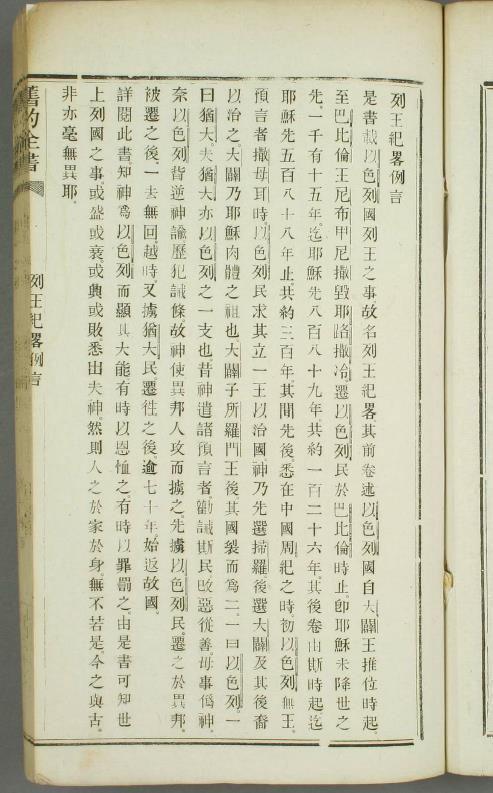 列王紀畧例言
是書載以色列國列王之事故名列王紀畧其前卷述以色列國自大闢王推位時起、
至巴比倫王尼布甲尼撒毀耶路撒冷遷以色列民於巴比倫時止。卽耶穌未降世之
先、一千有十五年迄耶穌先八百八十九年共約一百二十六年。其後卷由斯時起迄
耶穌先五百八十八年止共約三百年。其間先後悉在中國周紀之時初以色列無王。
預言者撒母耳時以色列民求其立一王以治國。神乃先選掃羅後選大闢及其後裔
以治之。大闢乃耶穌肉體之祖也。大闢子所羅門王後其國裂而爲二、一曰以色列。一
曰猶大。夫猶大亦以色列之一支也。昔神遣諸預言者勸誡斯民改惡從善毋事僞神。
奈以色列背逆神諭歷犯誡條故神使異邦人攻而擄之。先擄以色列民遷之於異邦。
被遷之後一去無回。越時又擄猶大民遷徃之後逾七十年始返故國。
詳閱此書知神爲以色列而顯其大能有時以恩恤之有時以罪罰之。由是書可知世
上列國之事或盛或衰或興或敗悉出夫神。然則人之於家於身無不若是。今之與古。
非亦毫無異耶。
舊約全書
列王紀畧例言